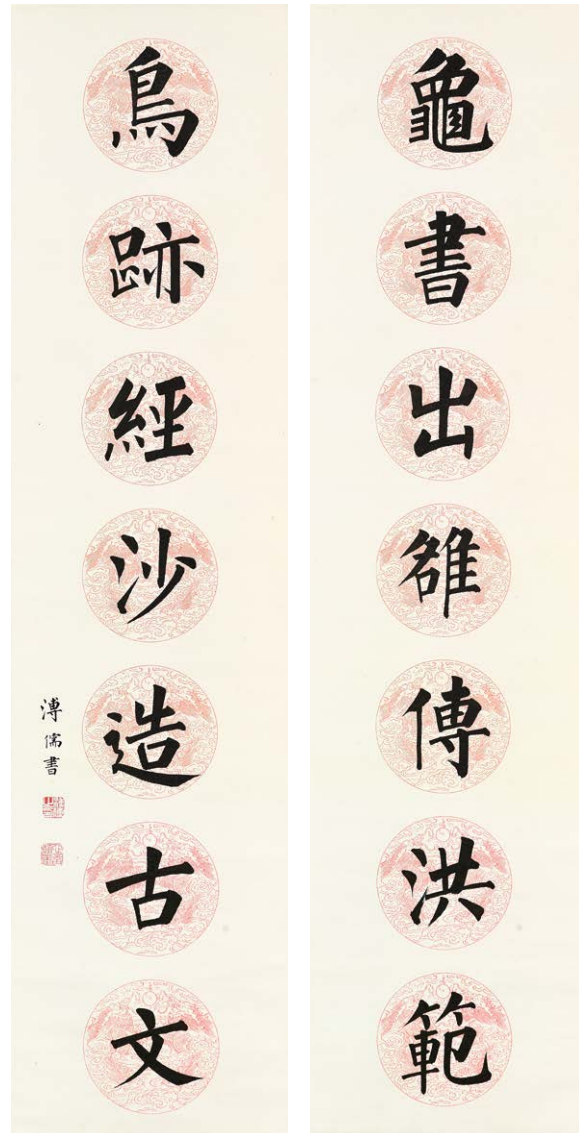 龜書出雒傳洪範
鳥跡經沙造古文
溥儒書